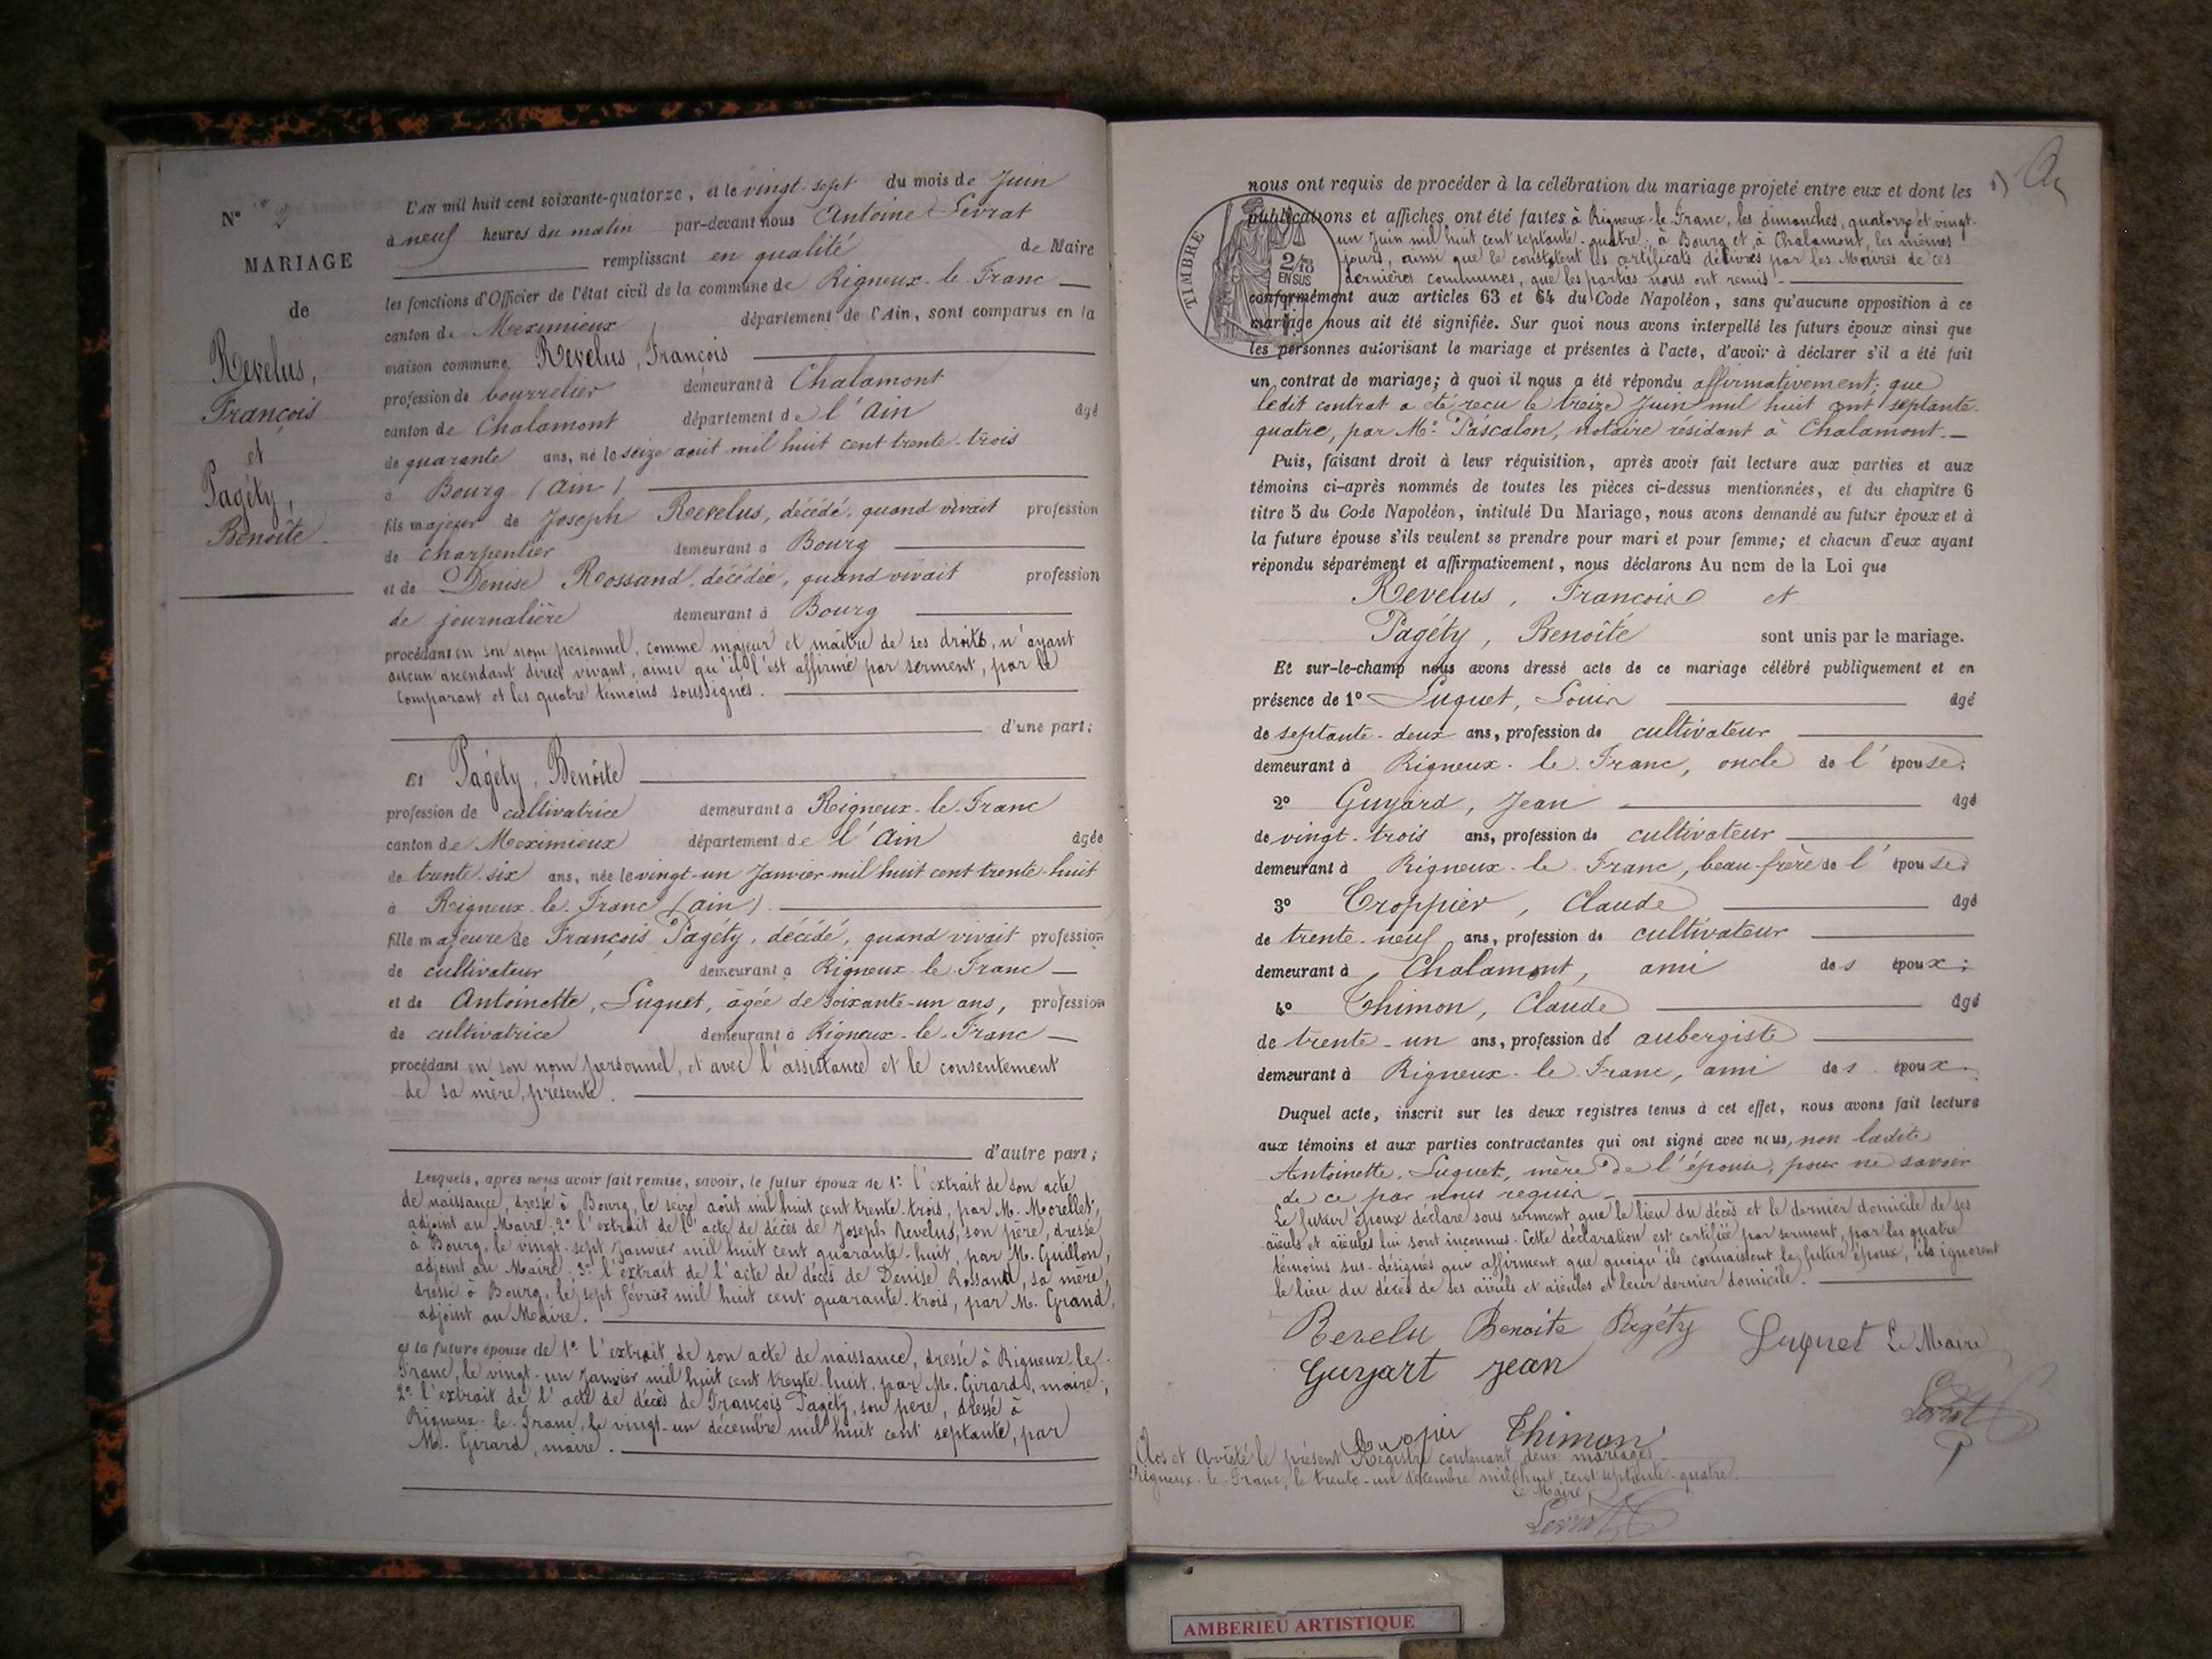 N° 2
MARIAGE
de
Revelus,
François
et
Pagéty,
Benoîte.
L'AN mil huit cent soixante-quatorze, et le vingt-sept du mois de Juin
à neuf heures du matin par-devant nous Antoine Levrat
remplissant en qualité de Maire
les fonctions d'Officier de l'état civil de la commune de Rigneux-le-Franc
canton de Meximieux département de l'Ain, sont comparus en la
maison commune, Revelus, François
profession de bourrelier demeurant à Chalamont
canton de Chalamont département de l'Ain âgé
de quarante ans, né le seize août mil huit cent trente-trois
à Bourg (Ain)
fils majeur de Joseph Revelus, décédé, quand vivait profession
de charpentier demeurant à Bourg
et de Denise Rossand, décédée, quand vivait profession
de journalière demeurant à Bourg
procédant en son nom personnel, comme majeur et maître de ses droits, n'ayant
aucun ascendant direct vivant, ainsi qu'il l'est affirmé par serment, par le
comparant et les quatre témoins soussignés.
d'une part;
Et Pagéty, Benoîte
profession de cultivatrice demeurant à Rigneux-le-Franc
canton de Meximieux département de l'Ain âgée
de trente-six ans, née le vingt-un Janvier mil huit cent trente-huit
à Rigneux-le-Franc (Ain)
fille majeure de François Pagéty, décédé, quand vivait profession
de cultivateur demeurant à Rigneux-le-Franc
et de Antoinette, Luquet, âgée de soixante-un ans, profession
de cultivatrice demeurant à Rigneux-le-Franc
procédant en son nom personnel, et avec l'assistance et le consentement
de sa mère, présente.
d'autre part;
Lesquels, après nous avoir fait remise, savoir, le futur époux de 1° l'extrait de son acte
de naissance, dressé à Bourg, le seize août mil huit cent trente-trois, par M. Morellet,
adjoint au Maire; 2° l'extrait de l'acte de décès de Joseph Revelus, son père, dressé
à Bourg, le vingt-sept Janvier mil huit cent quarante-huit, par M. Guillon,
adjoint au Maire; 3° l'extrait de l'acte de décès de Denise Rossand, sa mère,
dressé à Bourg, le sept février mil huit cent quarante-trois, par M. Grand,
adjoint au Maire.
et la future épouse de 1° l'extrait de son acte de naissance, dressé à Rigneux-le-
Franc, le vingt-un Janvier mil huit cent trente-huit, par M. Girard, maire;
2° l'extrait de l'acte de décès de François Pagéty, son père, dressé à
Rigneux-le-Franc, le vingt-un décembre mil huit cent septante, par
M. Girard, maire.
nous ont requis de procéder à la célébration du mariage projeté entre eux et dont les
publications et affiches ont été faites à Rigneux-le-Franc, les dimanches, quatorze et vingt-
un Juin mil huit cent septante-quatre; à Bourg et à Chalamont, les mêmes
jours, ainsi que le constatent les certificats délivrés par les Maires de ces
dernières communes, que les parties nous ont remis.
TIMBRE
2/10
EN SUS
conformément aux articles 63 et 64 du Code Napoléon, sans qu'aucune opposition à ce
mariage nous ait été signifiée. Sur quoi nous avons interpellé les futurs époux ainsi que
les personnes autorisant le mariage et présentes à l'acte, d'avoir à déclarer s'il a été fait
un contrat de mariage; à quoi il nous a été répondu affirmativement; que
ledit contrat a été reçu le treize Juin mil huit cent septante-
quatre, par Me Pascalon, notaire résidant à Chalamont.
Puis, faisant droit à leur réquisition, après avoir fait lecture aux parties et aux
témoins ci-après nommés de toutes les pièces ci-dessus mentionnées, et du chapitre 6
titre 5 du Code Napoléon, intitulé Du Mariage, nous avons demandé au futur époux et à
la future épouse s'ils veulent se prendre pour mari et pour femme; et chacun d'eux ayant
répondu séparément et affirmativement, nous déclarons Au nom de la Loi que
Revelus, François et
Pagéty, Benoîte sont unis par le mariage.
Et sur-le-champ nous avons dressé acte de ce mariage célébré publiquement et en
présence de 1° Luquet, Louis âgé
de septante-deux ans, profession de cultivateur
demeurant à Rigneux-le-Franc, oncle de l'épouse;
2° Guyard, Jean âgé
de vingt-trois ans, profession de cultivateur
demeurant à Rigneux-le-Franc, beau-frère de l'épouse;
3° Croppier, Claude âgé
de trente-neuf ans, profession de cultivateur
demeurant à Chalamont, ami des époux;
4° Thimon, Claude âgé
de trente-un ans, profession de aubergiste
demeurant à Rigneux-le-Franc, ami des époux.
Duquel acte, inscrit sur les deux registres tenus à cet effet, nous avons fait lecture
aux témoins et aux parties contractantes qui ont signé avec nous, non ladite
Antoinette, Luquet, mère de l'épouse, pour ne savoir
de ce par nous requis.
Le futur époux déclare sous serment que le lieu du décès et le dernier domicile de ses
aïeuls et aïeules lui sont inconnus. Cette déclaration est certifiée par serment, par les quatre
témoins sus-désignés qui affirment que quoiqu'ils connaissent le futur époux, ils ignorent
le lieu du décès de ses aïeuls et aïeules et leur dernier domicile.
Revelu Benoite Pagéty Luquet Le Maire
Guyart jean
Levrat
Thimon
Clos et Arrêté le présent Registre contenant deux mariages
Rigneux-le-Franc, le trente-un décembre mil huit cent septante-quatre.
Le Maire,
Levrat
AMBERIEU ARTISTIQUE